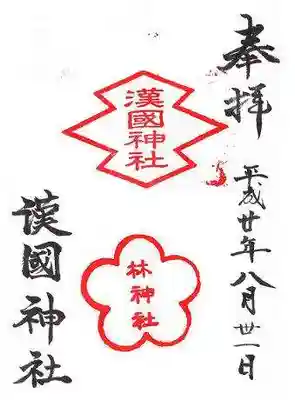 奉拝
平成廿年八月丗一日
漢國神社
林神社
漢國神社